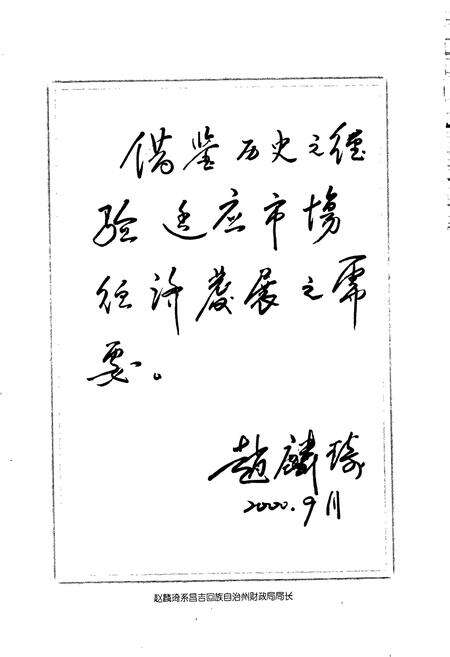 借鉴历史之经
验适应市场
经济发展之需
要。
赵麟琦
2000.9月
赵麟琦系昌吉回族自治州财政局局长